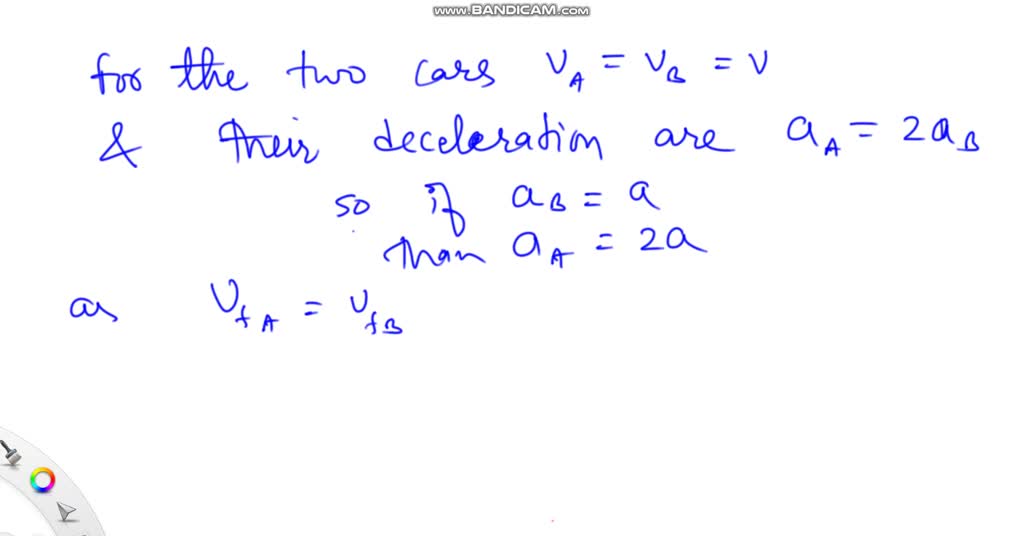 www.BANDICAM.com
for the two cars v_A = v_B = v
& their deceleration are a_A = 2a_B
so if a_B = a
than a_A = 2a
as v_fA = v_fB